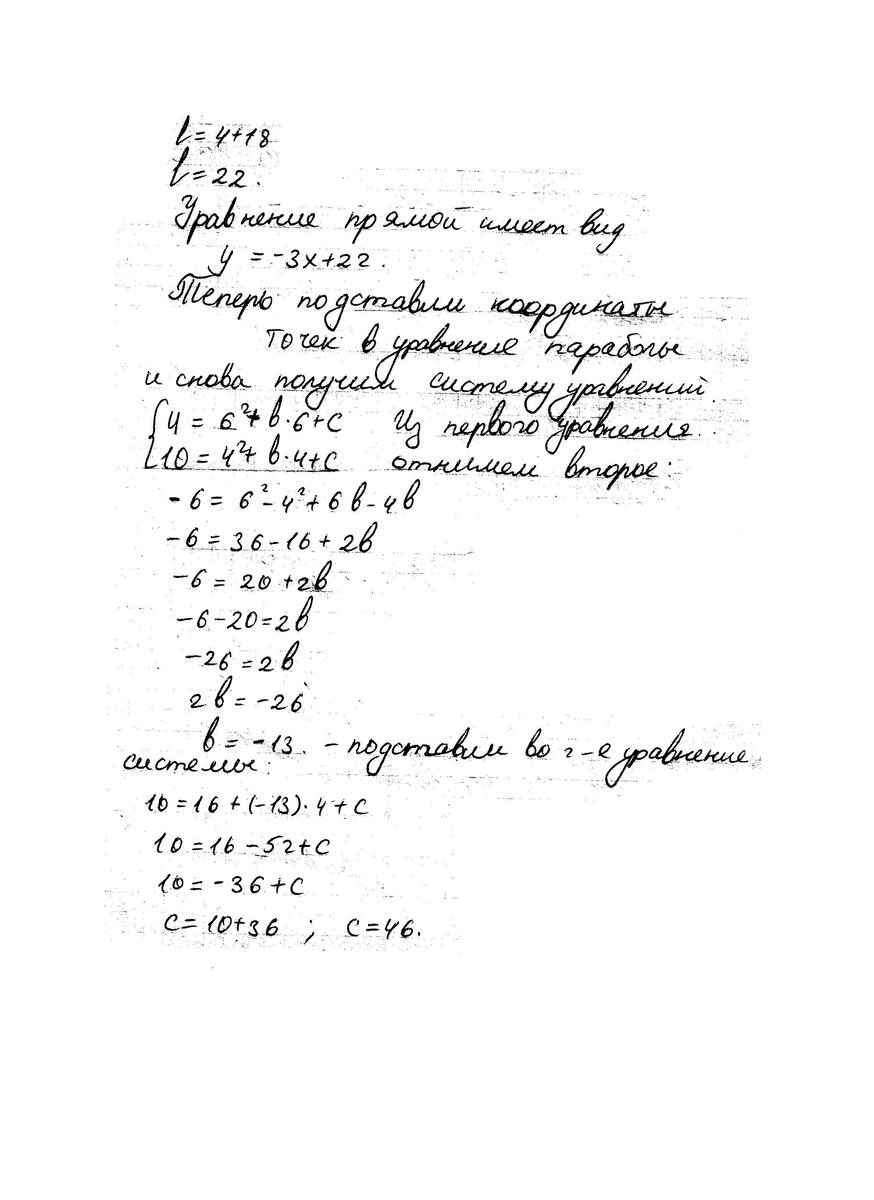 l = 4+18
l = 22.
Уравнение прямой имеет вид
y = -3x+22.
Теперь подставим координаты
точек в уравнение параболы
и снова получим систему уравнений.
{4 = 6²+ в·6+с Из первого уравнения
{10 = 4²+ в·4+с отнимем второе:
-6 = 6²-4²+6в-4в
-6 = 36-16+2в
-6 = 20+2в
-6-20=2в
-26=2в
2в=-26
в = -13. - подставим во 2-е уравнение
системы:
10=16+(-13)·4+с
10=16-52+с
10=-36+с
с=10+36 ; с=46.